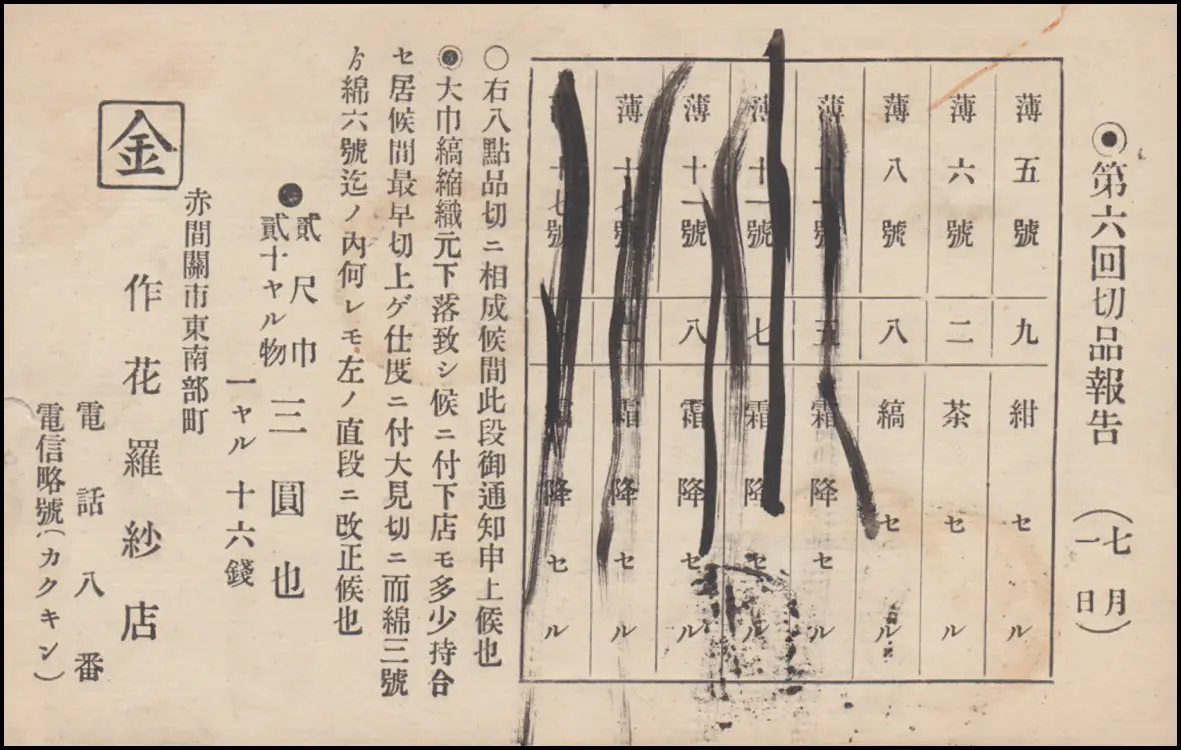 ◉第六回切品報告（七月一日）
薄五號 九 紺セル
薄六號 二 茶セル
薄八號 八 縞セル
薄十一號 五 霜降セル
薄十一號 七 霜降セル
薄十一號 八 霜降セル
薄十七號 二 霜降セル
薄十七號 霜降セル
○右八點品切ニ相成候間此段御通知申上候也
◉大巾縞縮織元下落致シ候ニ付下店モ多少持合
セ居候間最早切上ゲ仕度ニ付大見切ニ而綿三號
ゟ綿六號迄ノ内何レモ左ノ直段ニ改正候也
貳尺巾
貳十ヤル物
三圓也
一ヤル十六錢
赤間關市東南部町
金
作花羅紗店
電話八番
電信略號（カクキン）